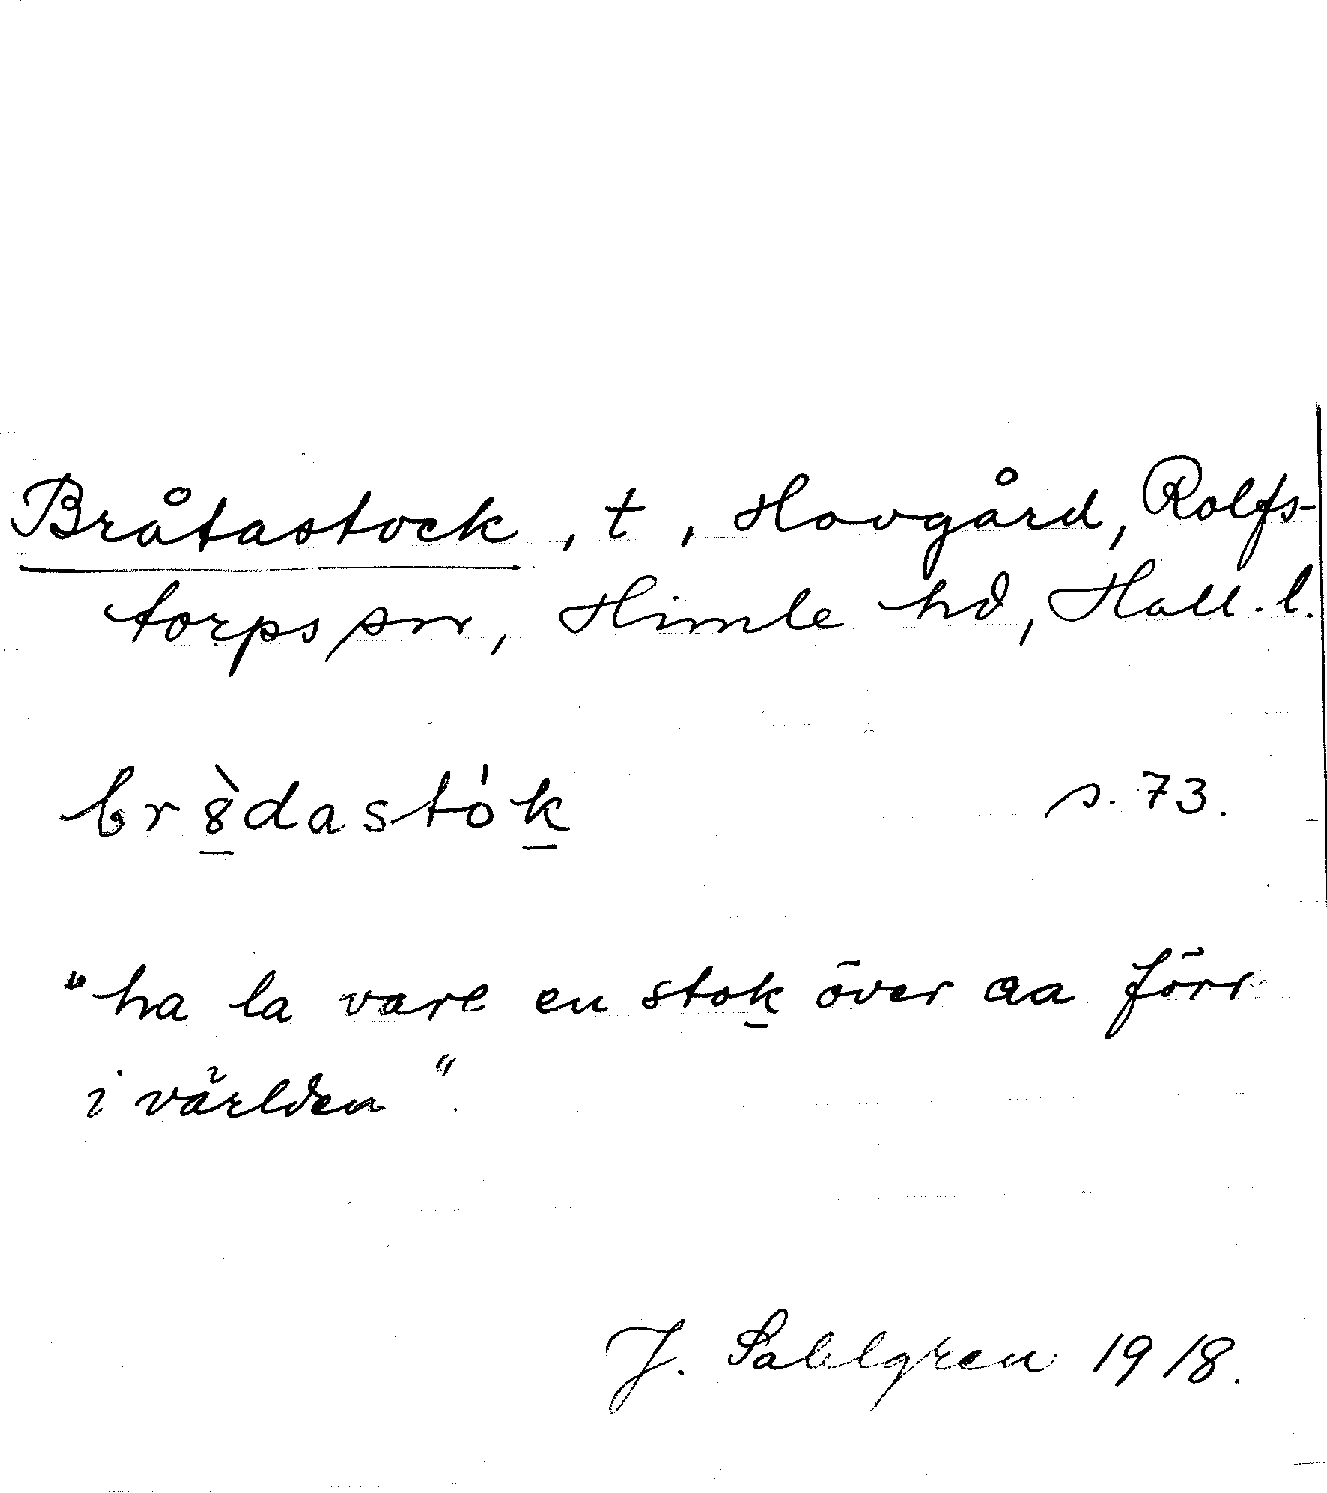 Bråtastock, t, Hovgård, Rolfs-
torps sn, Himle hd, Hall. l.
br8̀dastók s. 73.
"ha la vare en stok över aa förr
i världen".
J. Sahlgren 1918.